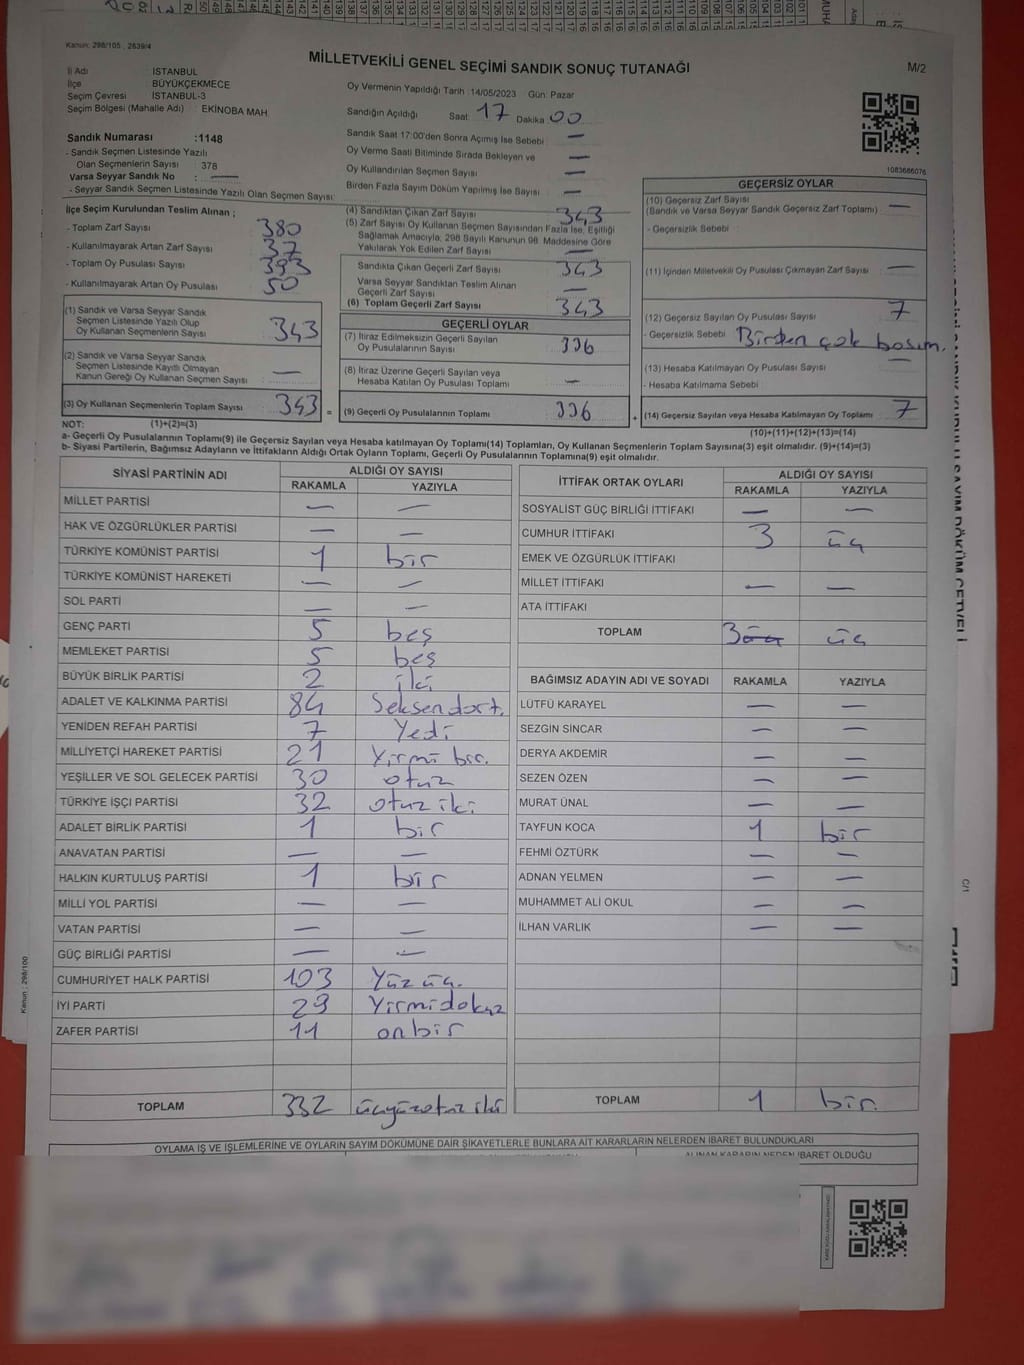 Kanun: 298/105 , 2839/4
MİLLETVEKİLİ GENEL SEÇİMİ SANDIK SONUÇ TUTANAĞI
M/2
İl Adı : İSTANBUL
İlçe : BÜYÜKÇEKMECE
Seçim Çevresi : İSTANBUL-3
Seçim Bölgesi (Mahalle Adı) : EKİNOBA MAH
Sandık Numarası :1148
- Sandık Seçmen Listesinde Yazılı
Olan Seçmenlerin Sayısı : 378
Varsa Seyyar Sandık No : —
- Seyyar Sandık Seçmen Listesinde Yazılı Olan Seçmen Sayısı:
Oy Vermenin Yapıldığı Tarih :14/05/2023 Gün: Pazar
Sandığın Açıldığı Saat 17 Dakika 00
Sandık Saat 17:00'den Sonra Açımış İse Sebebi : —
Oy Verme Saati Bitiminde Sırada Bekleyen ve
Oy Kullandırılan Seçmen Sayısı —
Birden Fazla Sayım Döküm Yapılmış İse Sayısı : —
1083686076
İlçe Seçim Kurulundan Teslim Alınan ;
- Toplam Zarf Sayısı : 380
- Kullanılmayarak Artan Zarf Sayısı : 37
- Toplam Oy Pusulası Sayısı : 393
- Kullanılmayarak Artan Oy Pusulası : 50
(1) Sandık ve Varsa Seyyar Sandık
Seçmen Listesinde Yazılı Olup
Oy Kullanan Seçmenlerin Sayısı : 343
(2) Sandık ve Varsa Seyyar Sandık
Seçmen Listesinde Kayıtlı Olmayan
Kanun Gereği Oy Kullanan Seçmen Sayısı : —
(3) Oy Kullanan Seçmenlerin Toplam Sayısı : 343 =
(1)+(2)=(3)
(4) Sandıktan Çıkan Zarf Sayısı : 343
(5) Zarf Sayısı Oy Kullanan Seçmen Sayısından Fazla İse, Eşitliği
Sağlamak Amacıyla, 298 Sayılı Kanunun 98. Maddesine Göre
Yakılarak Yok Edilen Zarf Sayısı : —
Sandıkta Çıkan Geçerli Zarf Sayısı : 343
Varsa Seyyar Sandıktan Teslim Alınan
Geçerli Zarf Sayısı : —
(6) Toplam Geçerli Zarf Sayısı : 343
GEÇERLİ OYLAR
(7) İtiraz Edilmeksizin Geçerli Sayılan
Oy Pusulalarının Sayısı : 336
(8) İtiraz Üzerine Geçerli Sayılan veya
Hesaba Katılan Oy Pusulası Toplamı : —
(9) Geçerli Oy Pusulalarının Toplamı : 336 +
GEÇERSİZ OYLAR
(10) Geçersiz Zarf Sayısı
(Sandık ve Varsa Seyyar Sandık Geçersiz Zarf Toplamı) : —
- Geçersizlik Sebebi :
(11) İçinden Milletvekili Oy Pusulası Çıkmayan Zarf Sayısı : —
(12) Geçersiz Sayılan Oy Pusulası Sayısı : 7
- Geçersizlik Sebebi : Birden çok basım.
(13) Hesaba Katılmayan Oy Pusulası Sayısı : —
- Hesaba Katılmama Sebebi :
(14) Geçersiz Sayılan veya Hesaba Katılmayan Oy Toplamı : 7
(10)+(11)+(12)+(13)=(14)
NOT:
a- Geçerli Oy Pusulalarının Toplamı(9) ile Geçersiz Sayılan veya Hesaba katılmayan Oy Toplamı(14) Toplamları, Oy Kullanan Seçmenlerin Toplam Sayısına(3) eşit olmalıdır. (9)+(14)=(3)
b- Siyasi Partilerin, Bağımsız Adayların ve İttifakların Aldığı Ortak Oyların Toplamı, Geçerli Oy Pusulalarının Toplamına(9) eşit olmalıdır.
SİYASİ PARTİNİN ADI ALDIĞI OY SAYISI
RAKAMLA YAZIYLA
MİLLET PARTİSİ — —
HAK VE ÖZGÜRLÜKLER PARTİSİ — —
TÜRKİYE KOMÜNİST PARTİSİ 1 bir
TÜRKİYE KOMÜNİST HAREKETİ — —
SOL PARTİ — —
GENÇ PARTİ 5 beş
MEMLEKET PARTİSİ 5 beş
BÜYÜK BİRLİK PARTİSİ 2 iki
ADALET VE KALKINMA PARTİSİ 84 Seksendört.
YENİDEN REFAH PARTİSİ 7 Yedi
MİLLİYETÇİ HAREKET PARTİSİ 21 Yirmi bir.
YEŞİLLER VE SOL GELECEK PARTİSİ 30 otuz
TÜRKİYE İŞÇİ PARTİSİ 32 otuz iki
ADALET BİRLİK PARTİSİ 1 bir
ANAVATAN PARTİSİ — —
HALKIN KURTULUŞ PARTİSİ 1 bir
MİLLİ YOL PARTİSİ — —
VATAN PARTİSİ — —
GÜÇ BİRLİĞİ PARTİSİ — —
CUMHURİYET HALK PARTİSİ 103 Yüz üç.
İYİ PARTİ 29 Yirmidokuz
ZAFER PARTİSİ 11 onbir
TOPLAM 332 üçyüzotuz iki
İTTİFAK ORTAK OYLARI ALDIĞI OY SAYISI
RAKAMLA YAZIYLA
SOSYALİST GÜÇ BİRLİĞİ İTTİFAKI — —
CUMHUR İTTİFAKI 3 üç
EMEK VE ÖZGÜRLÜK İTTİFAKI
MİLLET İTTİFAKI — —
ATA İTTİFAKI
TOPLAM 3 üç
BAĞIMSIZ ADAYIN ADI VE SOYADI RAKAMLA YAZIYLA
LÜTFÜ KARAYEL — —
SEZGİN SİNCAR — —
DERYA AKDEMİR — —
SEZEN ÖZEN — —
MURAT ÜNAL — —
TAYFUN KOCA 1 bir
FEHMİ ÖZTÜRK — —
ADNAN YELMEN — —
MUHAMMET ALİ OKUL — —
İLHAN VARLIK — —
TOPLAM 1 bir.
OYLAMA İŞ VE İŞLEMLERİNE VE OYLARIN SAYIM DÖKÜMÜNE DAİR ŞİKAYETLERLE BUNLARA AİT KARARLARIN NELERDEN İBARET BULUNDUKLARI
ALINAN KARARIN NEDEN İBARET OLDUĞU
Kanun : 298/100
C/1